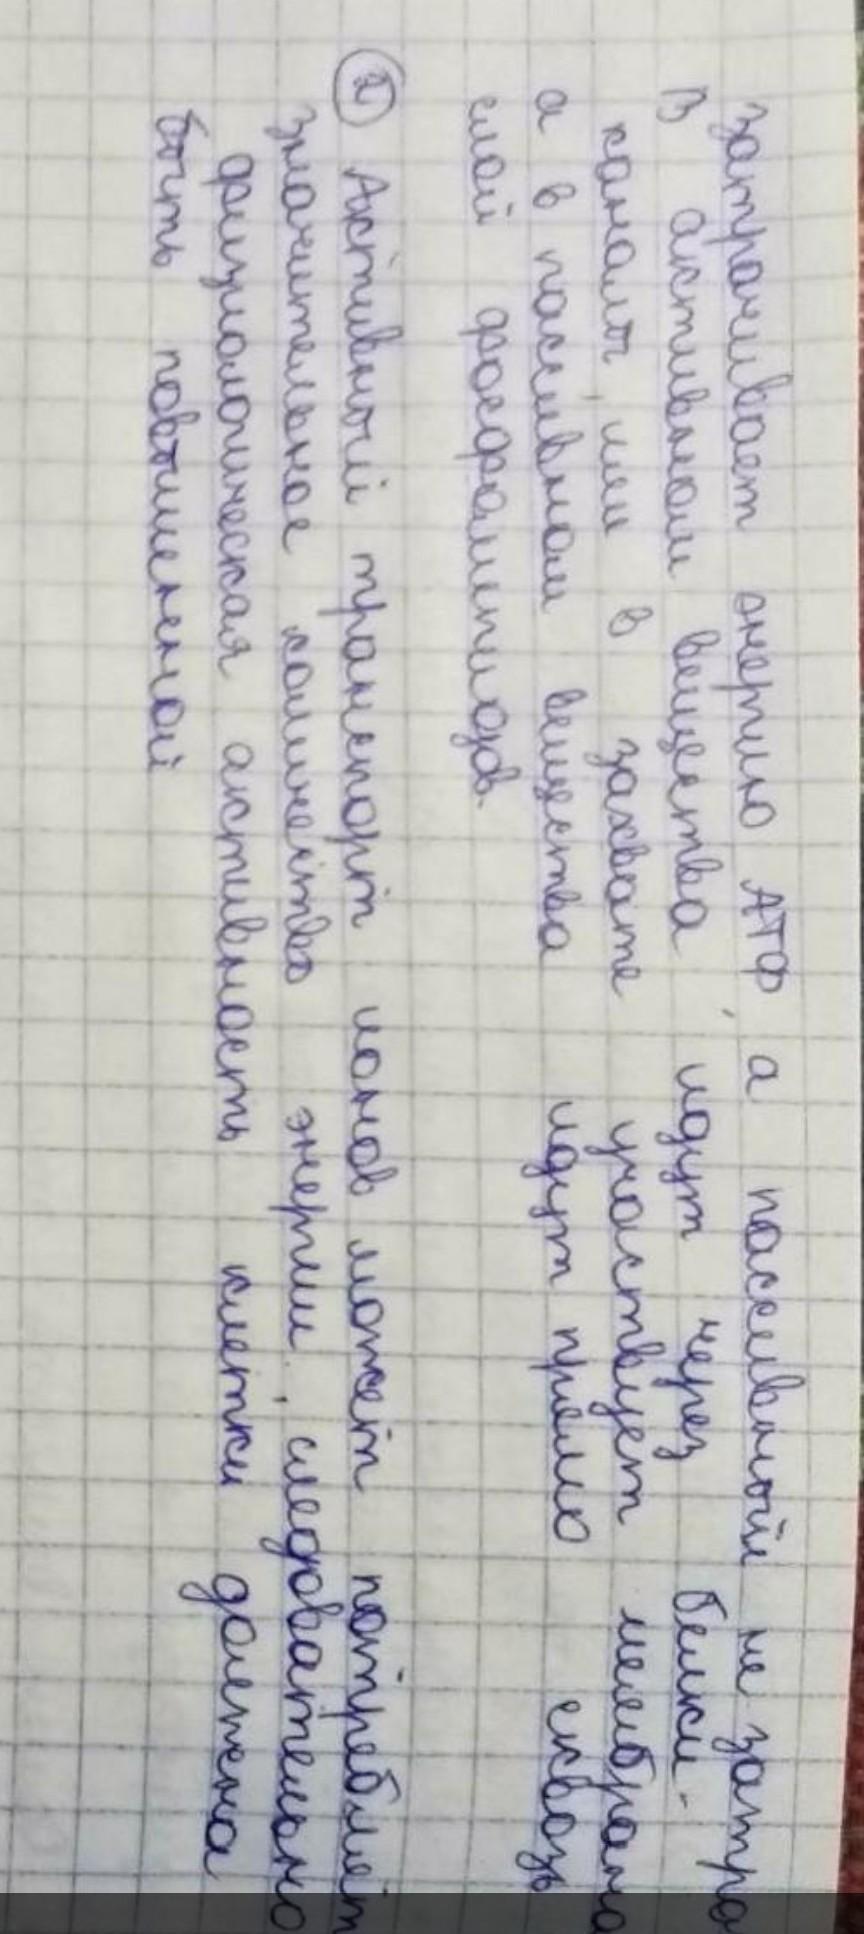 затрачивает энергию АТФ, а пассивный не затра
В активном вещества идут через белки-
каналы, или в захвате участвует мембрана
а в пассивном вещества идут прямо сквозь
слой фосфолипидов.
② Активный транспорт ионов может потреблят
значительное количество энергии, следовательно
физиологическая активность клетки должна
быть повышенной